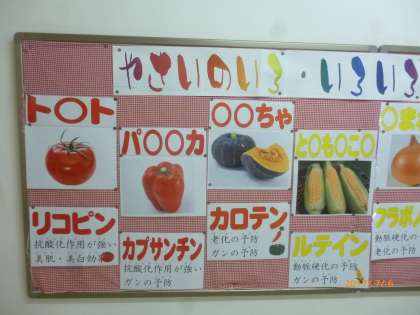 やさいのいろ・いろいろ
ト〇ト
リコピン
抗酸化作用が強い
美肌・美白効果
パ〇〇カ
カプサンチン
抗酸化作用が強い
ガンの予防
〇〇ちゃ
カロテン
老化の予防
ガンの予防
と〇も〇こ〇
ルテイン
動脈硬化の予防
ガンの予防
〇ま
フラボ
動脈硬化の
老化の予防